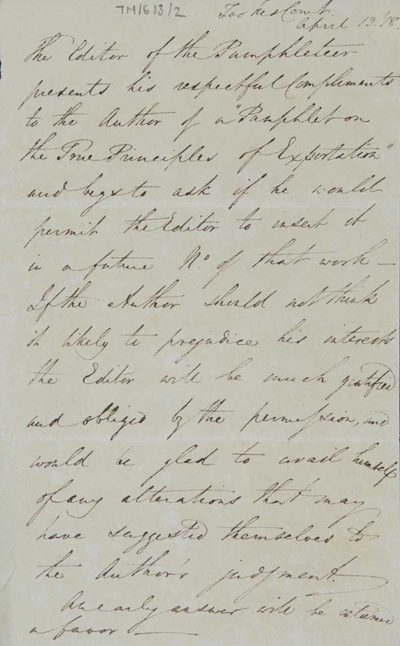 TM/613/2
Tookes Court
April 13. 18
The Editor of the Pamphleteer
presents his respectful Compliments
to the Author of a "Pamphlet on
the True Principles of Exportation"
and begs to ask if he would
permit the Editor to insert it
in a future No. of that work —
If the Author should not think
it likely to prejudice his interests
the Editor will be much gratified
and obliged by the permission, and
would be glad to avail himself
of any alterations that may
have suggested themselves to
the Author's judgment
An early answer will be esteemed
a favor —